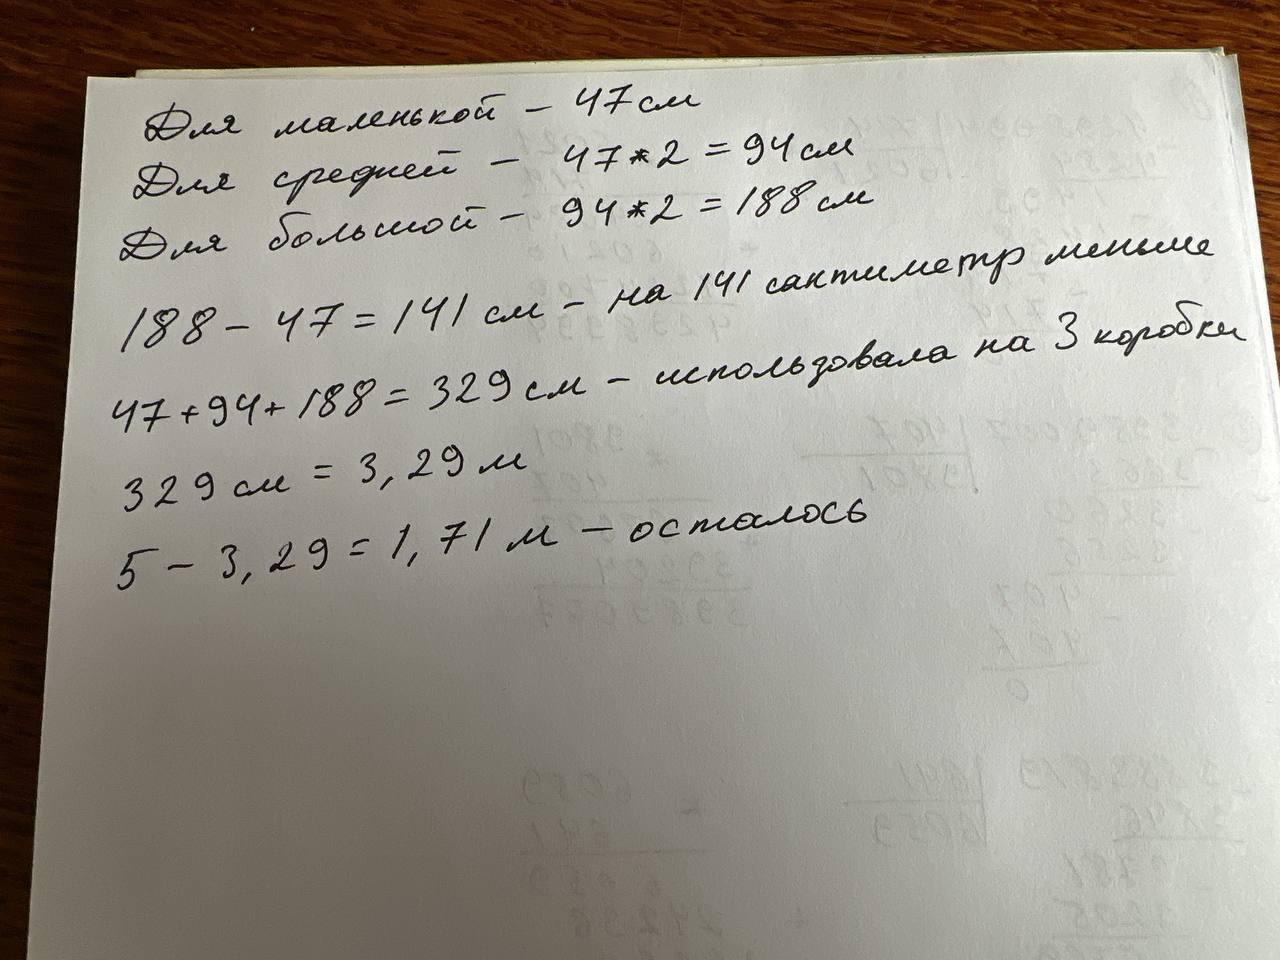 Для маленькой - 47 см
Для средней - 47*2 = 94 см
Для большой - 94*2 = 188 см
188 - 47 = 141 см - на 141 сантиметр меньше
47+94+188 = 329 см - использовала на 3 коробки
329 см = 3,29 м
5 - 3,29 = 1,71 м - осталось